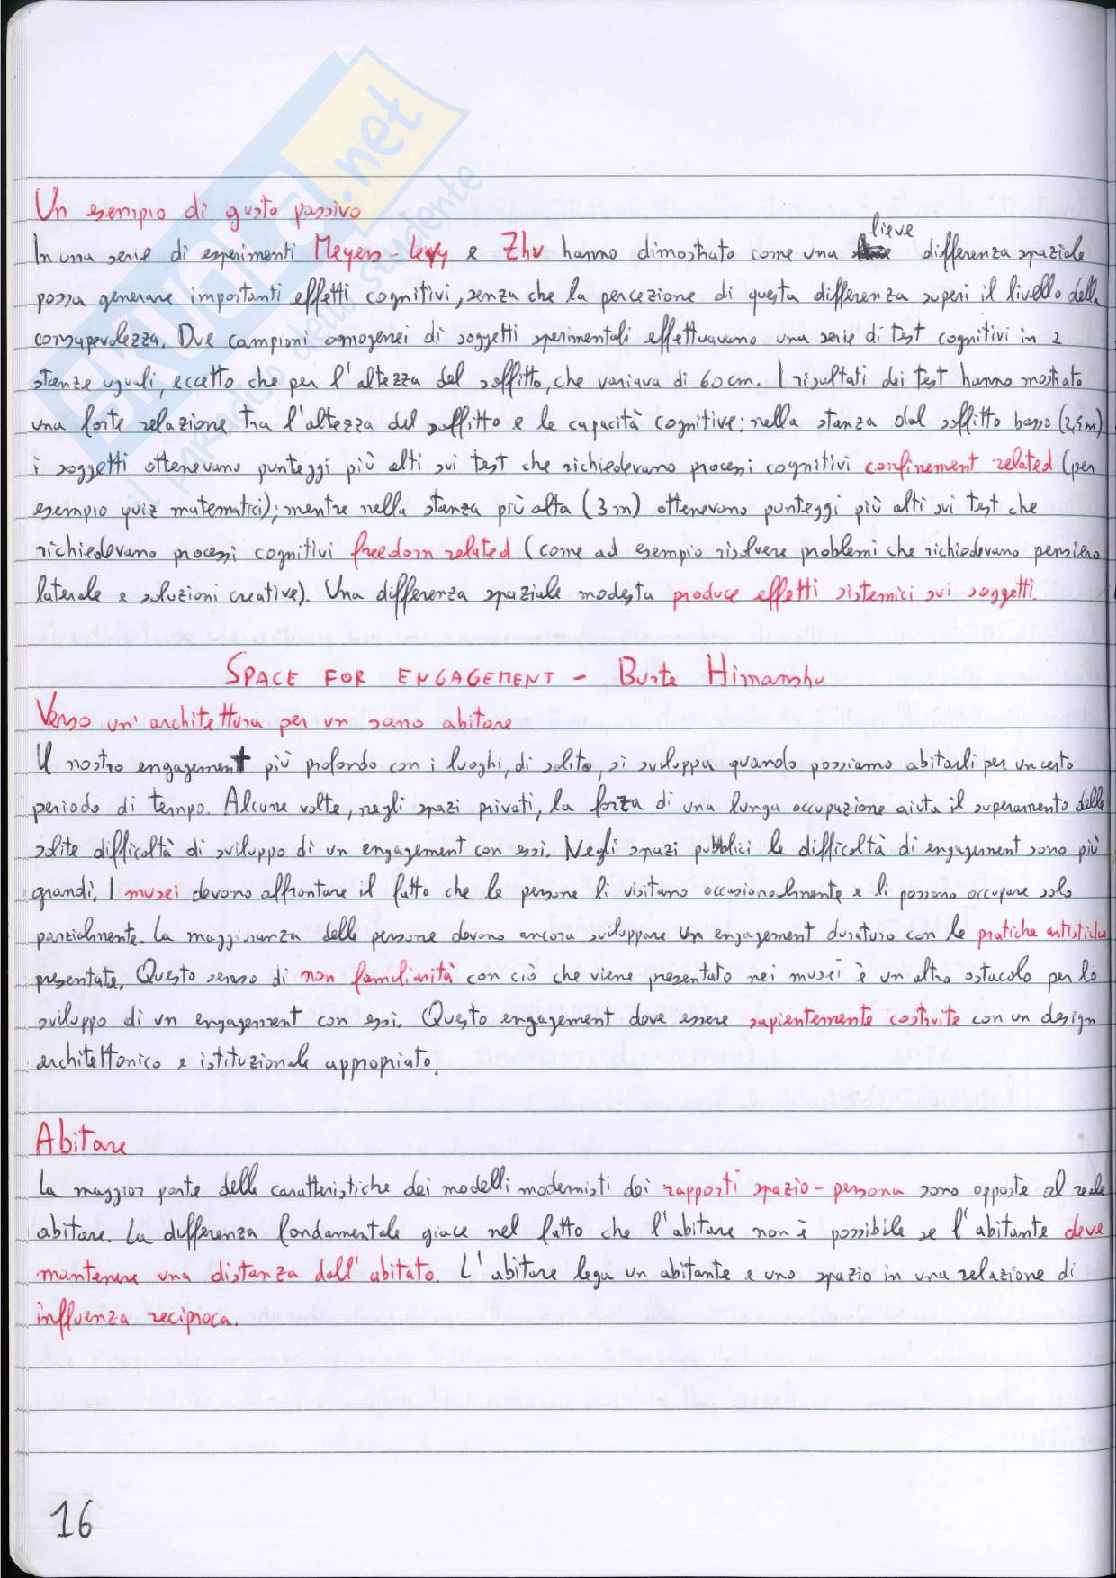 SKUOLA.net
il paradiso dello studente
Un esempio di gusto passivo
lieve
In una serie di esperimenti Meyers-Levy e Zhu hanno dimostrato come una differenza spaziale
possa generare importanti effetti cognitivi, senza che la percezione di questa differenza superi il livello della
consapevolezza. Due campioni omogenei di soggetti sperimentali effettuavano una serie di test cognitivi in 2
stanze uguali, eccetto che per l'altezza del soffitto, che variava di 60cm. I risultati dei test hanno mostrato
una forte relazione tra l'altezza del soffitto e le capacità cognitive: nella stanza dal soffitto basso (2,4m)
i soggetti ottenevano punteggi più alti sui test che richiedevano processi cognitivi confinement related (per
esempio quiz matematici); mentre nella stanza più alta (3m) ottenevano punteggi più alti sui test che
richiedevano processi cognitivi freedom related (come ad esempio risolvere problemi che richiedevano pensiero
laterale e soluzioni creative). Una differenza spaziale modesta produce effetti sistemici sui soggetti.
SPACE FOR ENGAGEMENT - Burte Himanshu
Verso un'architettura per un sano abitare
Il nostro engagement più profondo con i luoghi, di solito, si sviluppa quando possiamo abitarli per un certo
periodo di tempo. Alcune volte, negli spazi privati, la forza di una lunga occupazione aiuta il superamento delle
solite difficoltà di sviluppo di un engagement con essi. Negli spazi pubblici le difficoltà di engagement sono più
grandi. I musei devono affrontare il fatto che le persone li visitano occasionalmente e li possono occupare solo
parzialmente. La maggioranza delle persone devono ancora sviluppare un engagement duraturo con le pratiche artistiche
presentate. Questo senso di non familiarità con ciò che viene presentato nei musei è un altro ostacolo per lo
sviluppo di un engagement con essi. Questo engagement deve essere sapientemente costruito con un design
architettonico e istituzionale appropriato.
Abitare
La maggior parte delle caratteristiche dei modelli modernisti dei rapporti spazio-persona sono opposte al reale
abitare. La differenza fondamentale giace nel fatto che l'abitare non è possibile se l'abitante deve
mantenere una distanza dall'abitato. L'abitare lega un abitante e uno spazio in una relazione di
influenza reciproca.
16